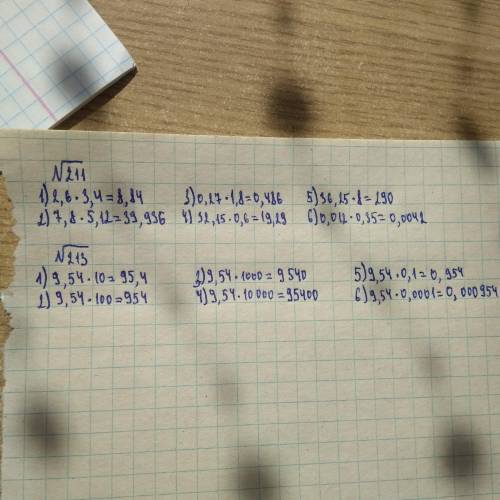 №211
1) 2,6 · 3,4 = 8,84 3) 0,27 · 1,8 = 0,486 5) 36,25 · 8 = 290
2) 7,8 · 5,12 = 39,936 4) 32,15 · 0,6 = 19,29 6) 0,012 · 0,35 = 0,0042
№213
1) 9,54 · 10 = 95,4 3) 9,54 · 1000 = 9540 5) 9,54 · 0,1 = 0,954
2) 9,54 · 100 = 954 4) 9,54 · 10000 = 95400 6) 9,54 · 0,0001 = 0,000954